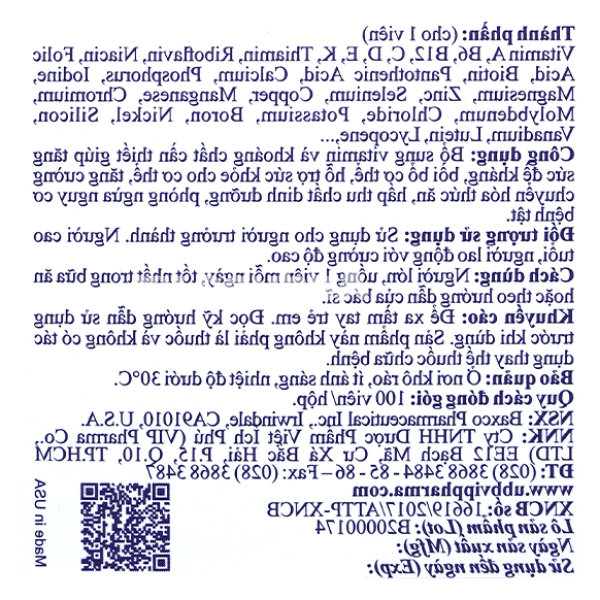 Thành phần: (cho 1 viên)
Vitamin A, B6, B12, C, D, E, K, Thiamin, Riboflavin, Niacin, Folic
Acid, Biotin, Pantothenic Acid, Calcium, Phosphorus, Iodine,
Magnesium, Zinc, Selenium, Copper, Manganese, Chromium,
Molybdenum, Chloride, Potassium, Boron, Nickel, Silicon,
Vanadium, Lutein, Lycopene,...
Công dụng: Bổ sung vitamin và khoáng chất cần thiết giúp tăng
sức đề kháng, bồi bổ cơ thể, hỗ trợ sức khỏe cho cơ thể, tăng cường
chuyển hóa thức ăn, hấp thu chất dinh dưỡng, phòng ngừa nguy cơ
bệnh tật.
Đối tượng sử dụng: Sử dụng cho người trưởng thành. Người cao
tuổi, người lao động với cường độ cao.
Cách dùng: Người lớn, uống 1 viên mỗi ngày, tốt nhất trong bữa ăn
hoặc theo hướng dẫn của bác sĩ.
Khuyến cáo: Để xa tầm tay trẻ em. Đọc kỹ hướng dẫn sử dụng
trước khi dùng. Sản phẩm này không phải là thuốc và không có tác
dụng thay thế thuốc chữa bệnh.
Bảo quản: Ở nơi khô ráo, ít ánh sáng, nhiệt độ dưới 30°C.
Quy cách đóng gói: 100 viên/ hộp.
NSX: Baxco Pharmaceutical Inc., Irwindale, CA91010, U.S.A.
NNK: Cty TNHH Dược Phẩm Việt Ích Phú (VIP Pharma Co.,
LTD) EE12 Bạch Mã, Cư Xá Bắc Hải, P.15, Q.10, TP.HCM
ĐT: (028) 3868 3484 - 85 - 86 – Fax: (028) 3868 3487
www.ubbvippharma.com
XNCB số: 16619/2017/ATTP-XNCB
Lô sản phẩm (Lot): B20000174
Ngày sản xuất (Mfg):
Sử dụng đến ngày (Exp):
Made in USA